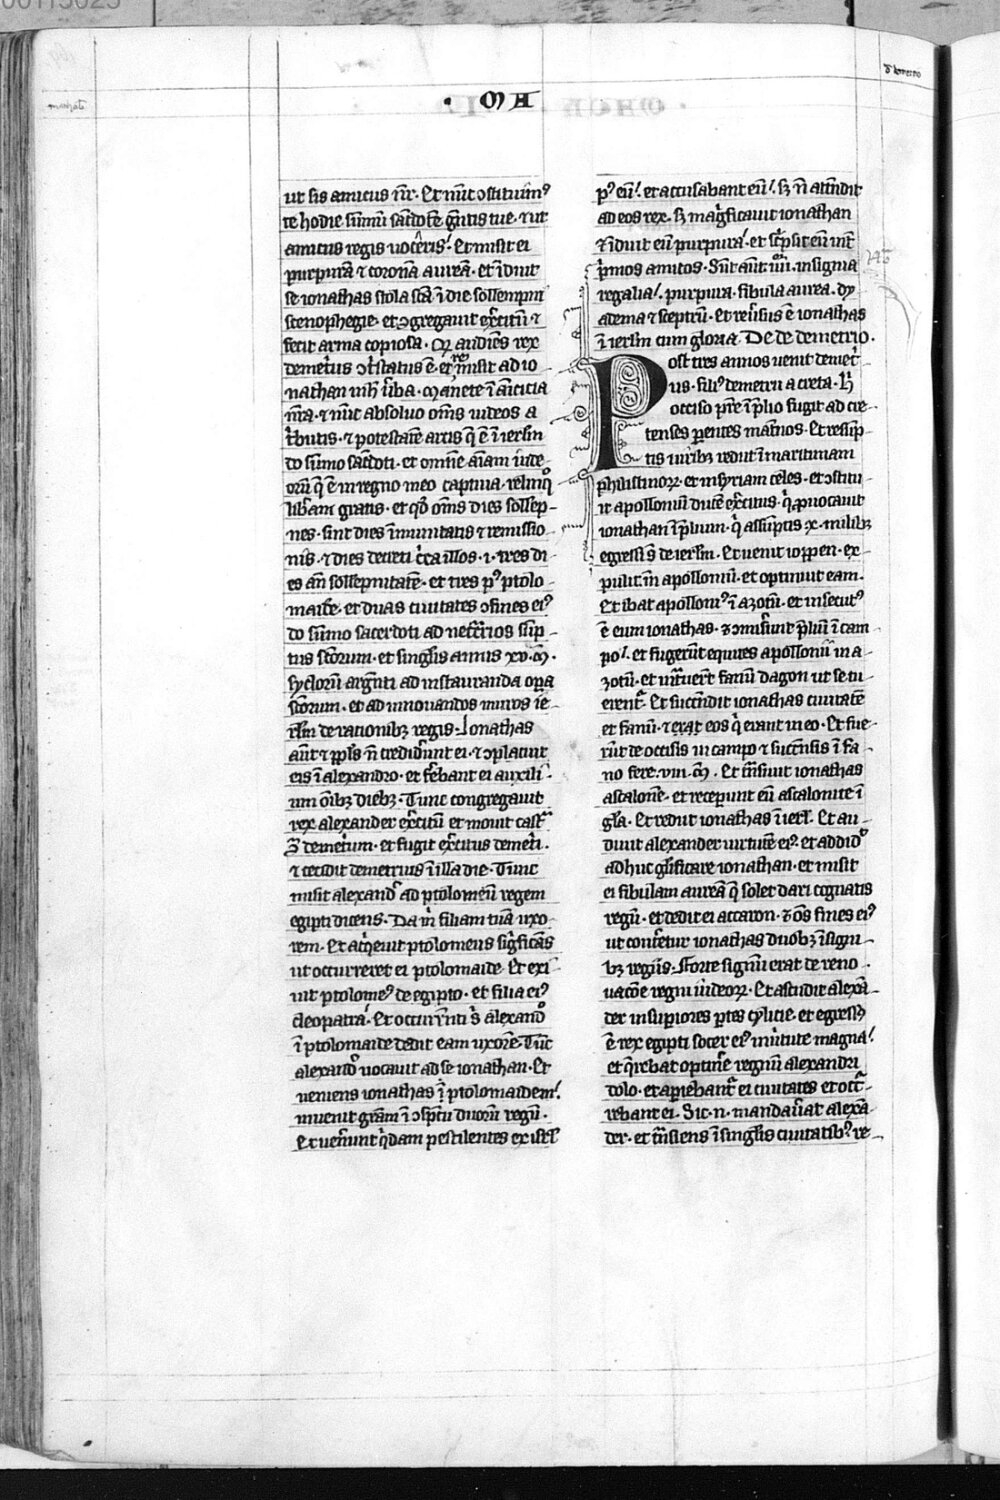 · MA
ut sis amicus nr̄. Et nūc ɔstituim⁹
te hodie sūmū sac̄dotē gentis tue · ⁊ ut
amicus regis uoceris. Et misit ei
purpurā ⁊ coronā aureā · et īduit
se ionathas stola scā ī die sollempni
scenophegie · et ɔgregauit exc̄itū ⁊
fecit arma copiosa · Q̄ audiēs rex
demetrius ɔtstatus ē · et misit ad io
nathan uba · Manete ī amicicia
nr̄a · ⁊ nūc absoluo om̄s iudeos a
tbutis · ⁊ potestatē arcis q̄ ē ī ierlm
do sūmo sac̄doti · et omnē aīam iude
orū q̄ ē in regno meo captiua · relinq̄
libam gratis · et qd̄ om̄s dies sollep-
nes · sint dies īmunitatis ⁊ remissio-
nis · ⁊ dies decreti cc̄a illos · i · tres di-
es an̄ sollepnitatē · et tres p⁹ ptolo
maide · et duas ciuitates ɔfines ei⁹
do sūmo sacerdoti ad necc̄rios sūp-
tus sc̄orum · et singlis annis xv · m̄ ·
syclorū argenti ad instauranda opa
sc̄orum · et ad innouandos muros ie-
rlm de rationibꝫ regis · Ionathas
aūt ⁊ ppls n̄ credidunt ei · ⁊ ɔplacuit
eis ī alexandro · et febant ei auxili-
um oībꝫ diebꝫ · Tunc congregauit
rex alexander exc̄itū et mouit cast̄
ɔ̄ demetrum · et fugit exc̄itus demet̄i ·
⁊ cecidit demetrius ī illa die · Tunc
misit alexand ad ptolomeū regem
egipti dicens · Da m̄ filiam tuā uxo-
rem · Et acq̄euit ptolomeus sigficās
ut occurreret ei ptolomaide · Et exi-
uit ptolome⁹ de egipto · et filia ei⁹
cleopatra · Et occurrenti s̄ alexand
ī ptolomaide dedit eam uxorē · Tūc
alexand uocauit ad se ionathan · Et
ueniens ionathas ī ptolomaidem
inuenit gram ī ɔspctu duorū regū ·
Et uenunt q̄dam pestilentes ex isrl
p⁹ eū · et accusabant eū · sꝫ n̄ atendit
ad eos rex · sꝫ magficauit ionathan
⁊ īduit eū purpura · et scpsit eū int̄
p̄mos amicos · Sūt aūt iiii · insignia
regalia · purpura · fibula aurea · dy
adema ⁊ sceptrū · Et reūsus ē ionathas
ī ierlm cum gloria · De de demetrio ·
Post tres annos uenit demet̄
ius · fili⁹ demetrii a creta · h̄
occiso pre ī plio fugit ad cre-
tenses parentes mat̄nos · Et resūp-
tis uiribꝫ rediit ī maritimam
philistinorꝫ · et in syriam celes · et ɔstitu
it apolloniū ducē exc̄itus · q̄ puocauit
ionathan ī plium · q̄ assūptis x · milibꝫ
egressꝰ de ierlm · Et uenit ioppen · ex-
pulit īn apolloniū · et optinuit eam ·
Et ibat apolloni⁹ ī azotū · et insecut⁹
ē eum ionathas · ⁊ ɔmisunt pliū ī cam
po · et fugerūt equites apollonii in a
zotū · et intuerē fanū dagon ut se tu
erent · Et succendit ionathas ciuitatē
et fanū · ⁊ erat eos q̄ erant in eo · Et fue-
rūt de occisis in campo ⁊ succensis ī fa-
no fere · viii · m̄ · Et tnsiuit ionathas
ascalonē · et receperunt eū ascalonite ī
gla · Et rediit ionathas ī ierl · Et au-
diuit alexander uirtutē ei⁹ · et addid
adhuc glificare ionathan · et misit
ei fibulam aureā q̄ solet dari cognatis
regū · et dedit ei accaron · ⁊ oēs fines ei⁹
ut conteretur ionathas duobꝫ insigni-
bꝫ regiis · Forte signū erat de reno ·
uacōe regni iudeorꝫ · Et ascendit alexā-
der in supiores ptes cylicie · et egressꝰ
ē rex egipti socer ei⁹ in uirtute magna
et q̄rebat optinē regnū alexandri
dolo · et apiebant ei ciuitates et occ-
rebant ei · Sic · n · mandauat alexā-
der · et tnsiens ī singlis ciuitatibꝫ re-